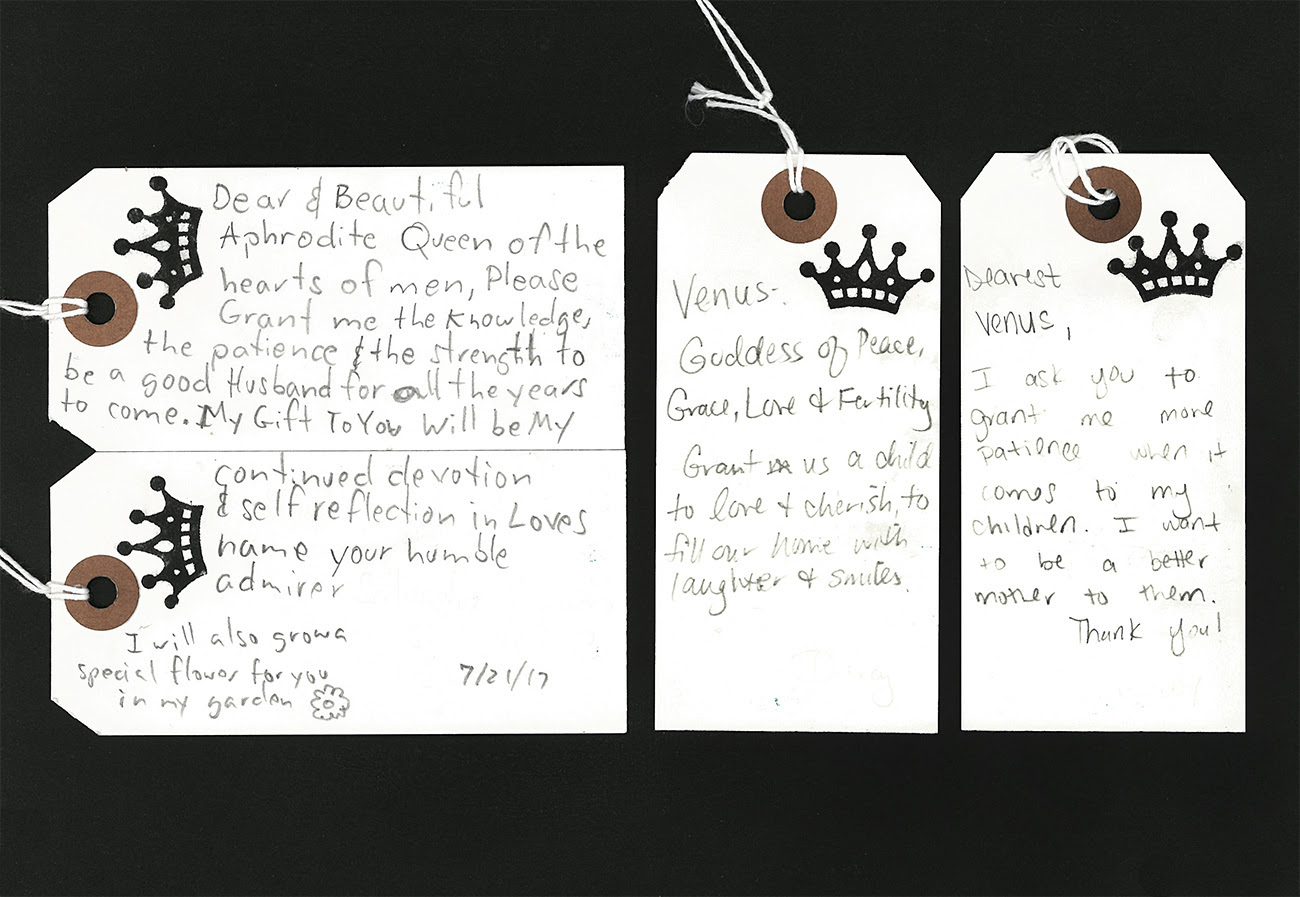 Dear & Beautiful
Aphrodite Queen of the
hearts of men, Please
Grant me the Knowledge,
the patience & the strength to
be a good Husband for all the years
to come. My Gift To You Will be My
continued devotion
& self reflection in Loves
name your humble
admirer
I will also grow a
special flower for you
in my garden
7/21/17
Venus-.
Goddess of Peace,
Grace, Love & Fertility
Grant us a child
to love & cherish, to
fill our home with
laughter & smiles.
Dearest
Venus,
I ask you to
grant me more
patience when it
comes to my
children. I want
to be a better
mother to them.
Thank you!